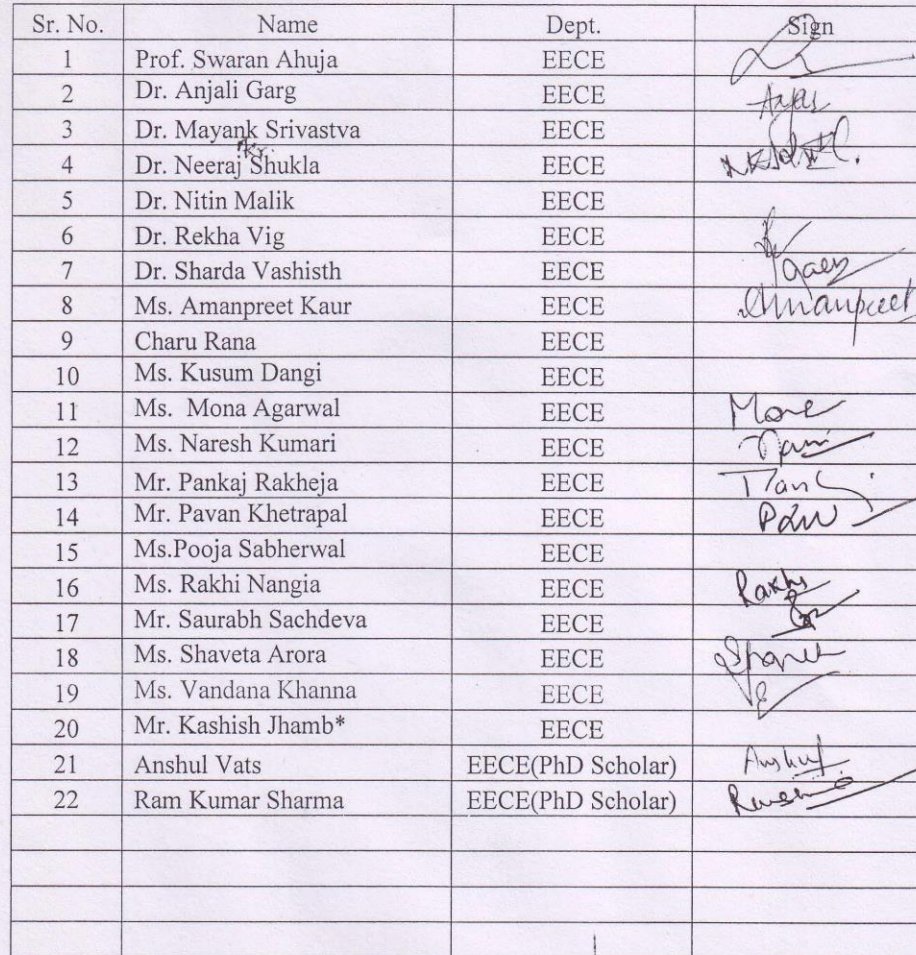 Sr. No. Name Dept. Sign
1 Prof. Swaran Ahuja EECE
2 Dr. Anjali Garg EECE
3 Dr. Mayank Srivastva EECE
Kr.
4 Dr. Neeraj Shukla EECE
5 Dr. Nitin Malik EECE
6 Dr. Rekha Vig EECE
7 Dr. Sharda Vashisth EECE
8 Ms. Amanpreet Kaur EECE Amanpreet
9 Charu Rana EECE
10 Ms. Kusum Dangi EECE
11 Ms. Mona Agarwal EECE Mona
12 Ms. Naresh Kumari EECE
13 Mr. Pankaj Rakheja EECE
14 Mr. Pavan Khetrapal EECE
15 Ms.Pooja Sabherwal EECE
16 Ms. Rakhi Nangia EECE Rakhi
17 Mr. Saurabh Sachdeva EECE
18 Ms. Shaveta Arora EECE
19 Ms. Vandana Khanna EECE
20 Mr. Kashish Jhamb* EECE
21 Anshul Vats EECE(PhD Scholar) Anshul
22 Ram Kumar Sharma EECE(PhD Scholar)